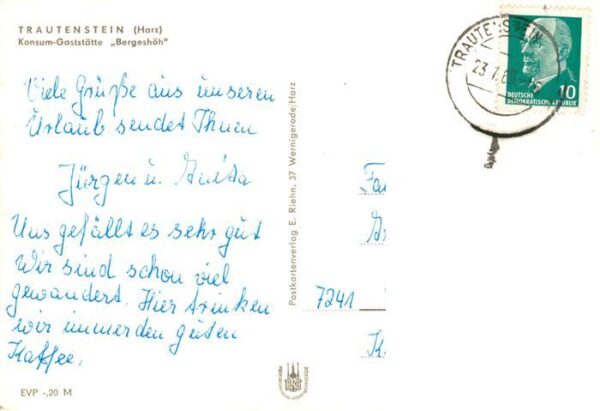 TRAUTENSTEIN (Harz)
Konsum-Gaststätte „Bergeshöh"
Viele Grüße aus unseren
Urlaub sendet Ihnen
Jürgen u. Anita
Uns gefällt es sehr gut
Wir sind schon viel
gewandert. Hier trinken
wir immer den guten
Kaffee.
EVP -,20 M
Postkartenverlag E. Riehn, 37 Wernigerode/Harz
TRAUTENSTEIN
23.7.
DEUTSCHE
DEMOKRATISCHE REPUBLIK
10
Fa
7241
K.